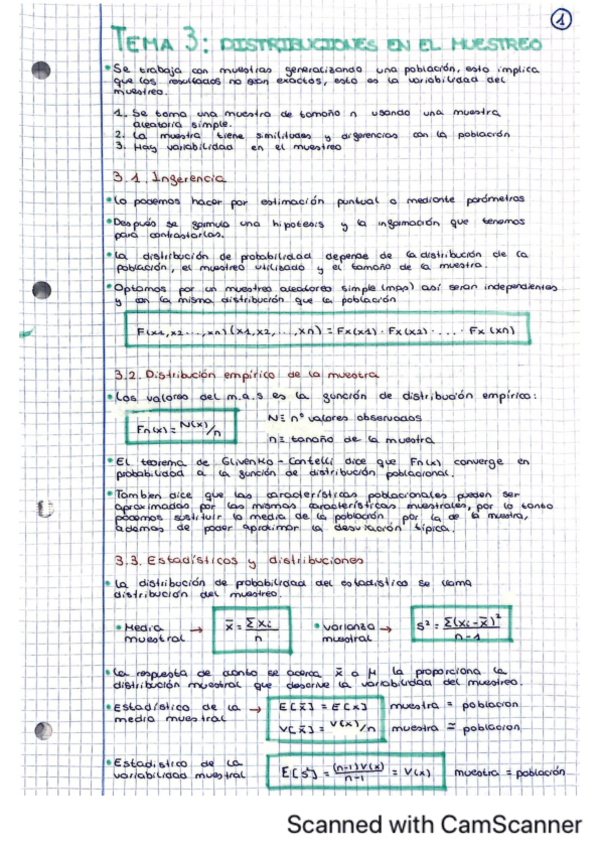 1
TEMA 3: DISTRIBUCIONES EN EL MUESTREO
• Se trabaja con muestras generalizando una población, esto implica
que los resultados no sean exactos, esto es la variabilidad del
muestreo.
1. Se toma una muestra de tamaño n usando una muestra
aleatoria simple.
2. La muestra tiene similitudes y diferencias con la población
3. Hay variabilidad en el muestreo
3.1. Inferencia
• Lo podemos hacer por estimación puntual o mediante parámetros
• Después se formula una hipotesis y la información que tenemos
para contrastarlas.
• La distribución de probabilidad depende de la distribución de la
población, el muestreo utilizado y el tamaño de la muestra.
• Optamos por un muestreo aleatoreo simple (mas) así seran independientes
y con la misma distribución que la población
F(x1,x2...,xn)(x1,x2,...,xn) = Fx(x1) · Fx(x2) · ... · Fx(xn)
3.2. Distribución empírico de la muestra
• Los valores del m.a.s es la función de distribución empírico:
Fn(x) = N(x)/n
N ≡ nº valores observados
n ≡ tamaño de la muestra
• El teorema de Glivenko-Cantelli dice que Fn(x) converge en
probabilidad a la función de distribución poblacional.
• Tambien dice que las características poblacionales pueden ser
aproximadas por las mismas características muestrales, por lo tanto
podemos sustituir la media de la población por la de la muestra,
además de poder aproximar la desviación típica.
3.3. Estadísticos y distribuciones
• La distribución de probabilidad del estadístico se llama
distribución del muestreo.
• Media muestral → x̄ = Σxi / n
• varianza muestral → s² = Σ(xi-x̄)² / n-1
• La respuesta de cuánto se acerca x̄ a μ la proporciona la
distribución muestral que describe la variabilidad del muestreo.
• Estadístico de la → E[x̄] = E[x] muestra = población
media muestral V[x̄] = V(x)/n muestra ≈ poblacion
• Estadístico de la
variabilidad muestral E[s²] = (n-1)V(x) / n-1 = V(x) muestra = población
Scanned with CamScanner